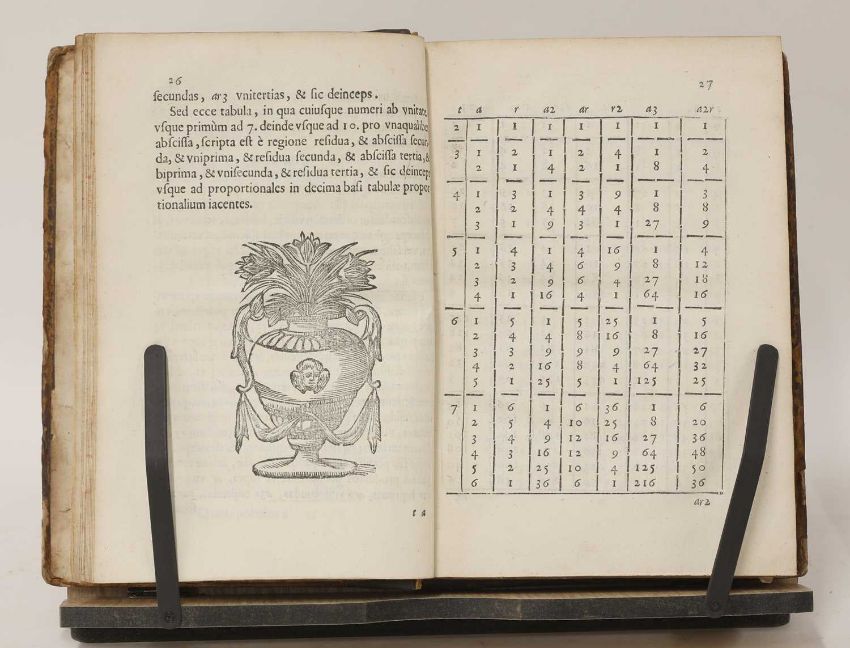 26
secundas, ar3 vnitertias, & sic deinceps.
Sed ecce tabula, in qua cuiusque numeri ab vnitate
vsque primùm ad 7. deinde vsque ad 10. pro vnaqualibet
abscissa, scripta est è regione residua, & abscissa secun-
da, & vniprima, & residua secunda, & abscissa tertia, &
biprima, & vnisecunda, & residua tertia, & sic deinceps
vsque ad proportionales in decima basi tabulæ propor-
tionalium iacentes.
t a
27
t a r a2 ar r2 a3 a2r
2 1 1 1 1 1 1 1
3 1 2 1 2 4 1 2
2 1 4 2 1 8 4
4 1 3 1 3 9 1 3
2 2 4 4 4 8 8
3 1 9 3 1 27 9
5 1 4 1 4 16 1 4
2 3 4 6 9 8 12
3 2 9 6 4 27 18
4 1 16 4 1 64 16
6 1 5 1 5 25 1 5
2 4 4 8 16 8 16
3 3 9 9 9 27 27
4 2 16 8 4 64 32
5 1 25 5 1 125 25
7 1 6 1 6 36 1 6
2 5 4 10 25 8 20
3 4 9 12 16 27 36
4 3 16 12 9 64 48
5 2 25 10 4 125 50
6 1 36 6 1 216 36
ar2